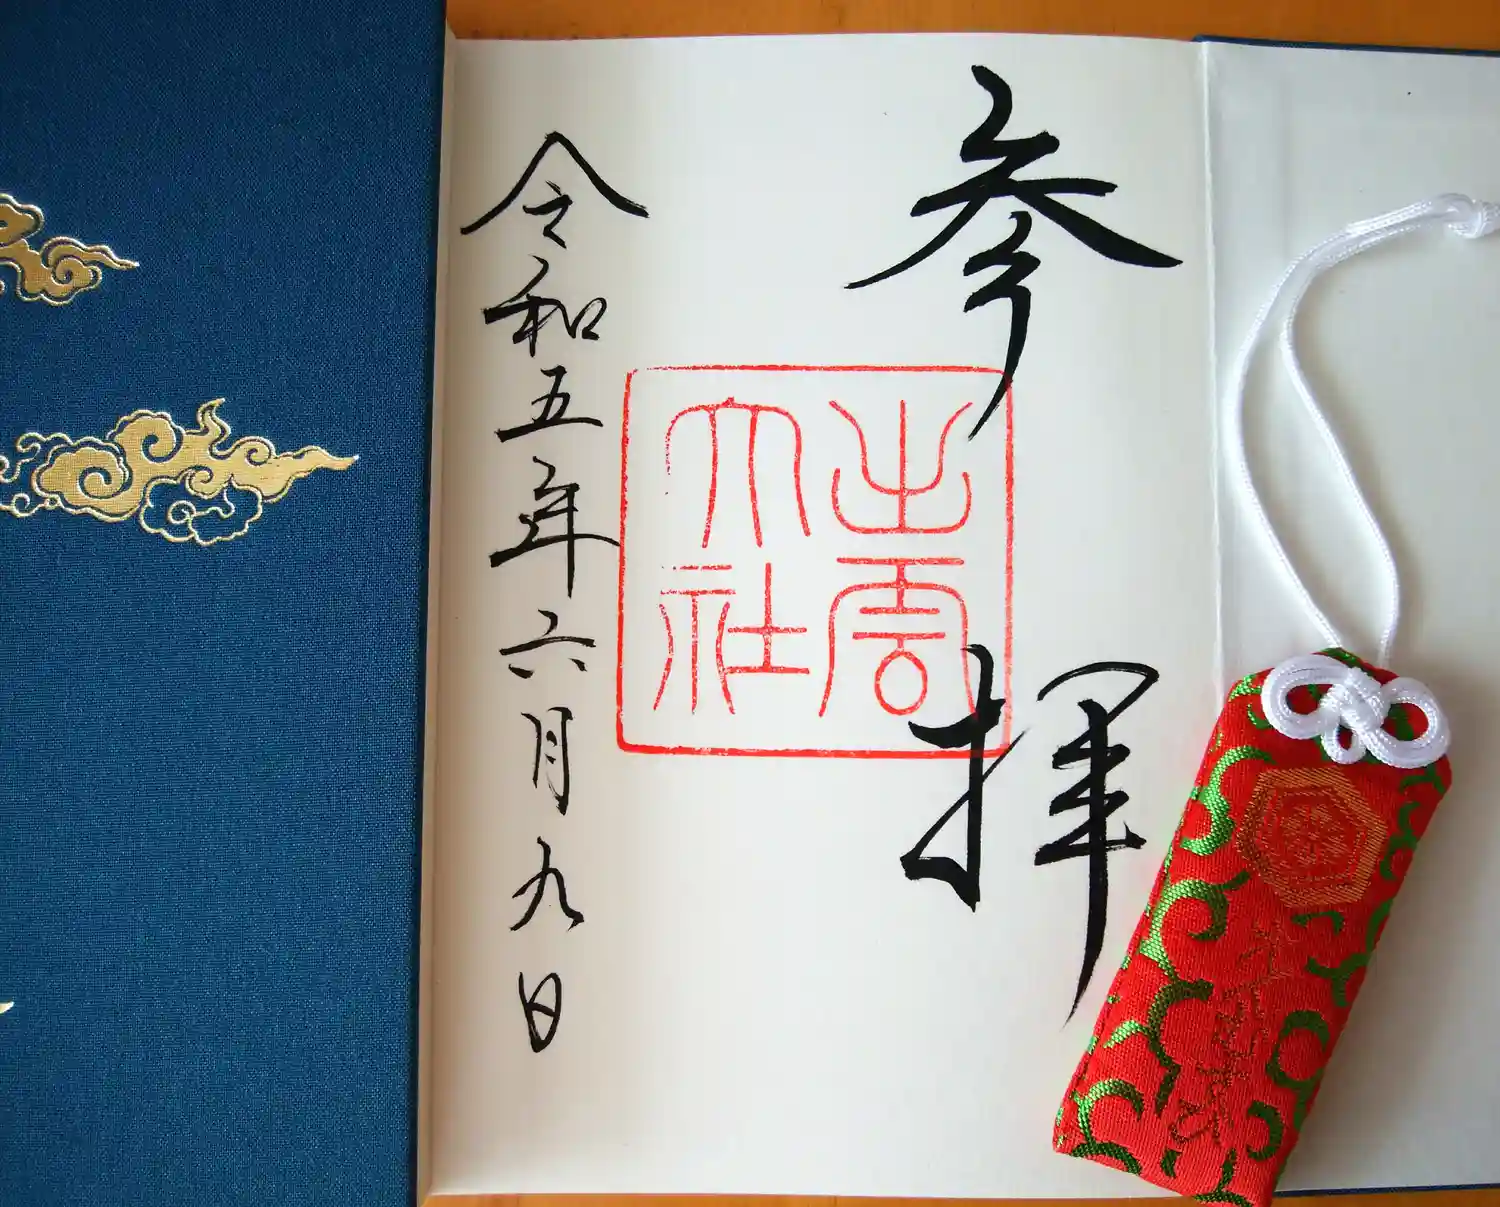 参拝
出雲
大社
令和五年六月九日